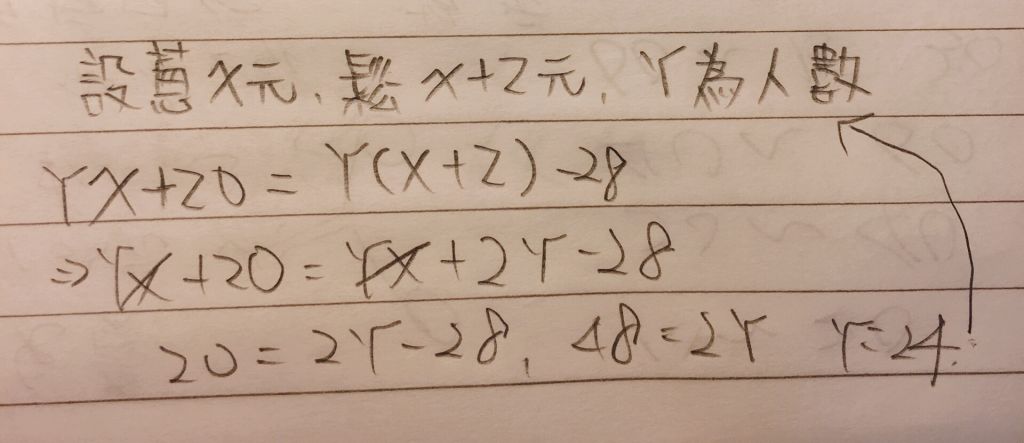 設蔥X元, 鬆X+2元, Y為人數
YX+20=Y(X+2)-28
⇒YX+20=YX+2Y-28
20=2Y-28, 48=2Y Y=24.